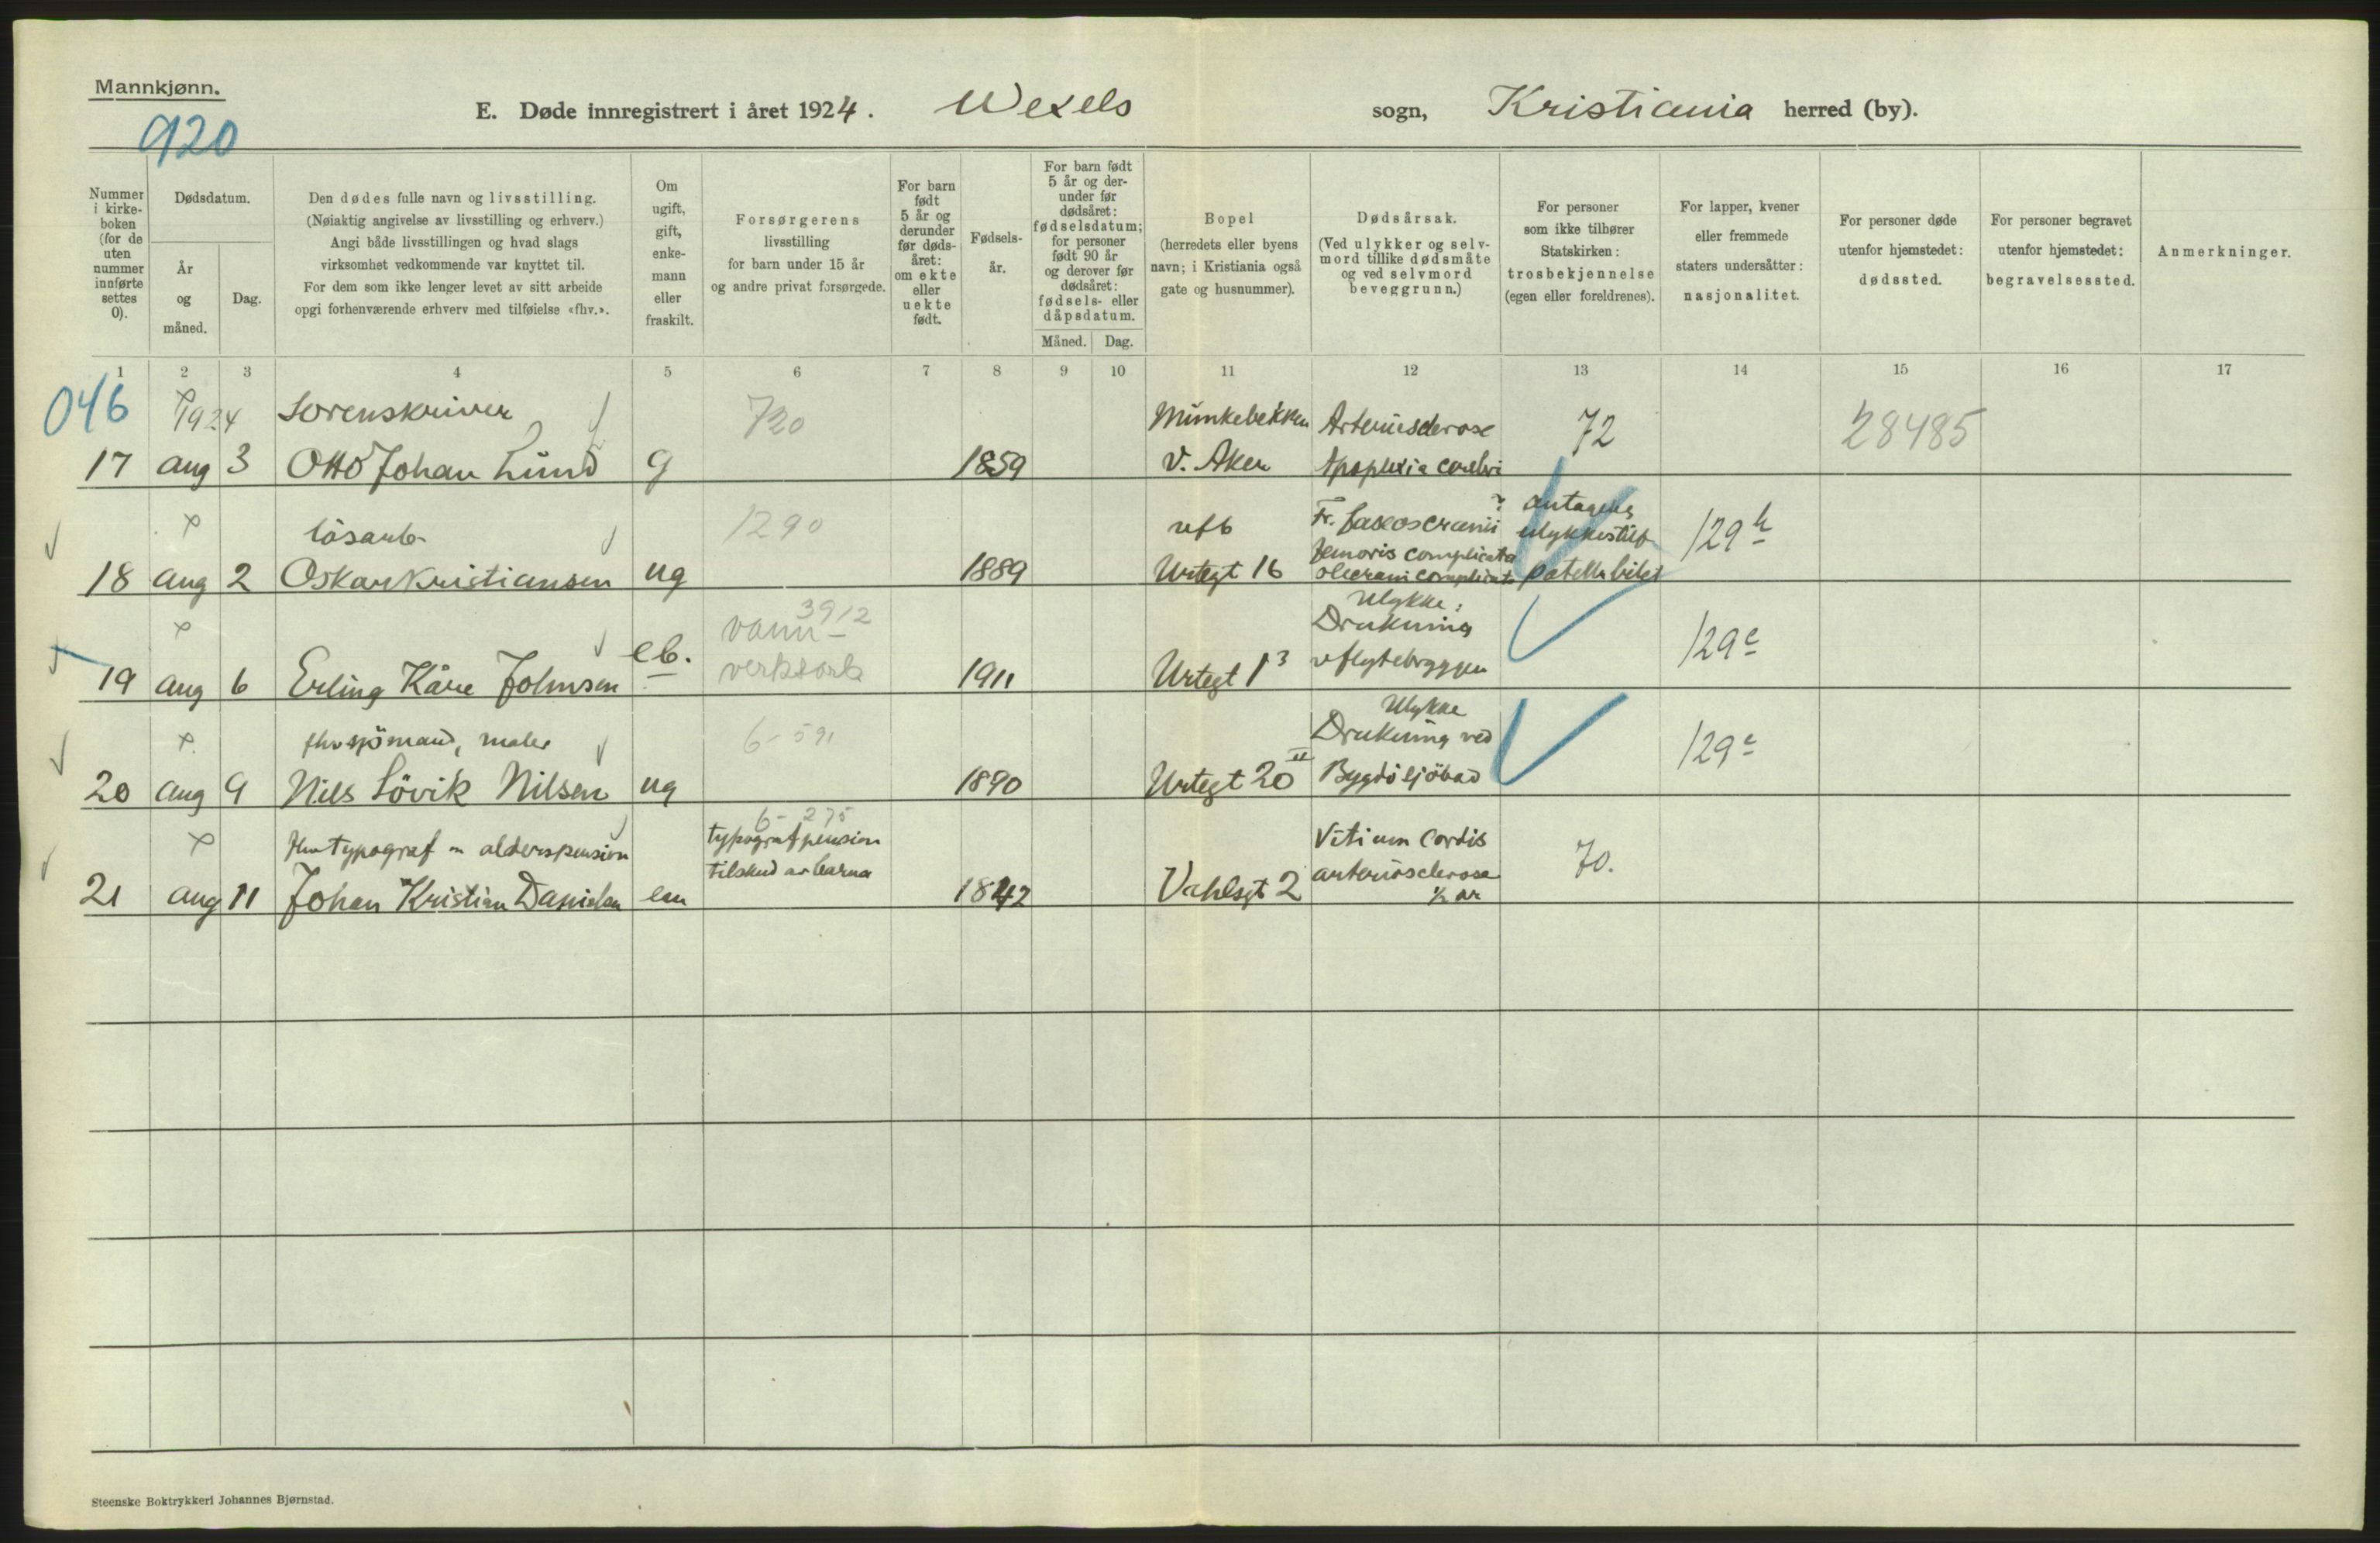 Mannkjønn.
920
E. Døde innregistrert i året 1924. Wexels sogn, Kristiania herred (by).
Nummer i kirke-boken (for de uten nummer innførte settes 0).
Dødsdatum.
År og måned.
Dag.
Den dødes fulle navn og livsstilling.
(Nøiaktig angivelse av livsstilling og erhverv.)
Angi både livsstillingen og hvad slags
virksomhet vedkommende var knyttet til.
For dem som ikke lenger levet av sitt arbeide
opgi forhenværende erhverv med tilføielse «fhv.».
Om ugift, gift, enke-mann eller fraskilt.
Forsørgerens
livsstilling
for barn under 15 år
og andre privat forsørgede.
For barn født 5 år og derunder før døds-året: om ekte eller uekte født.
Fødsels-år.
For barn født 5 år og der-under før dødsåret: fødselsdatum; for personer født 90 år og derover før dødsåret: fødsels- eller dåpsdatum.
Måned. Dag.
Bopel
(herredets eller byens
navn; i Kristiania også
gate og husnummer).
Dødsårsak.
(Ved ulykker og selv-
mord tillike dødsmåte
og ved selvmord
beveggrunn.)
For personer
som ikke tilhører
Statskirken:
trosbekjennelse
(egen eller foreldrenes).
For lapper, kvener
eller fremmede
staters undersåtter:
nasjonalitet.
For personer døde
utenfor hjemstedet:
dødssted.
For personer begravet
utenfor hjemstedet:
begravelsessted.
Anmerkninger.
1 2 3 4 5 6 7 8 9 10 11 12 13 14 15 16 17
046 1924 Sorenskriver 720 Munkebekken Arteriosclerose 72 28485
17 aug 3 Otto Johan Lund g 1859 V. Aker Apoplexia cerebri
løsarb 1290 ufb Fr. baseos cranii ? antagelig
femoris complicata ulykkestilf 129 h
18 aug 2 Oskar Kristiansen ug 1889 Urtegt 16 olecrani complicata
3912 Ulykke:
vann- Drukning
verksarb 129 c
19 aug 6 Erling Kåre Johnsen eb. 1911 Urtegt 13 v flytebryggen
Ulykke
fhv sjömand, maler 6-591 Drukning ved 129 c
20 aug 9 Nils Lövik Nilsen ug 1890 Urtegt 20 II Bygdö sjöbad
6-275
fhv typograf m alderspension typografpension Vitium cordis
tilskud av barna arteriosclerose 70.
21 aug 11 Johan Kristian Danielsen em 1842 Vahlsgt 2 ½ år
Steenske Boktrykkeri Johannes Bjørnstad.